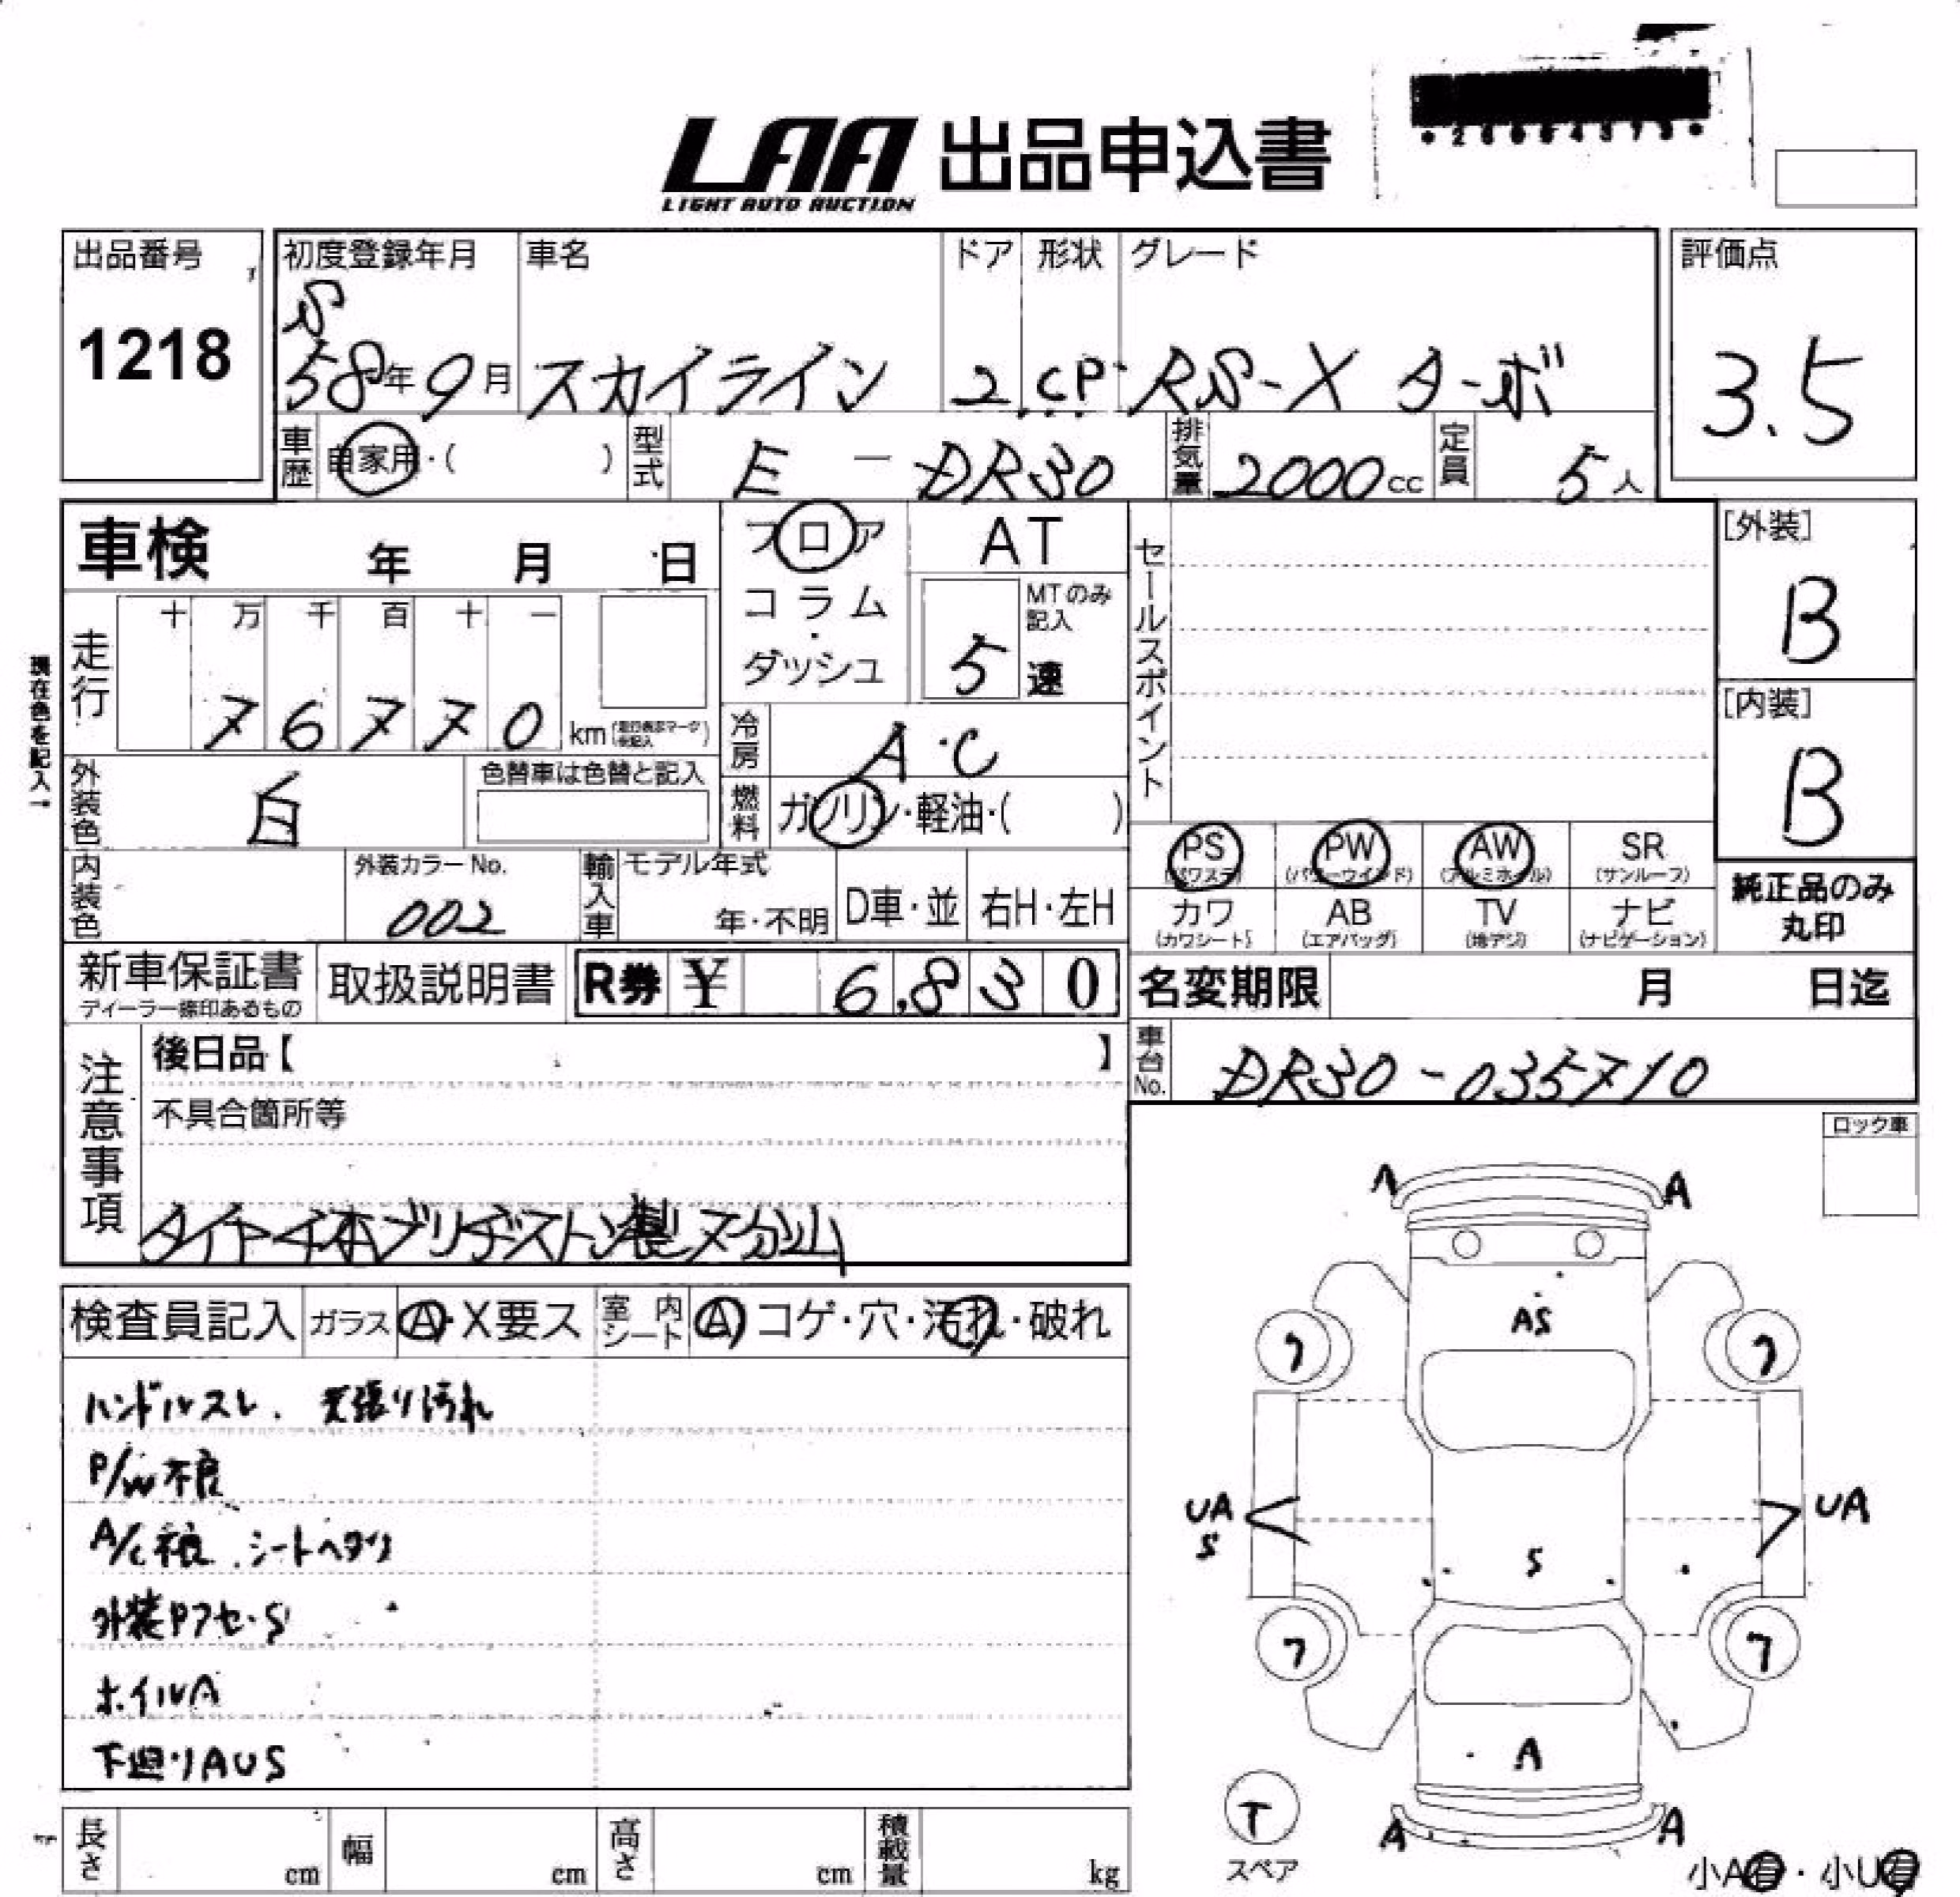 LAA 出品申込書
LIGHT AUTO AUCTION
出品番号
1218
初度登録年月 車名 ドア 形状 グレード
S
58年9月 スカイライン 2 CP RS-X ターボ
評価点
3.5
車歴 自家用・( ) 型式 E-DR30 排気量 2000cc 定員 5人
車検 年 月 日
フロア
コラム
ダッシュ
AT
MTのみ記入
5 速
セールスポイント
[外装]
B
[内装]
B
現在色を記入→
走行 十 万 千 百 十 一
76770 km
冷房 A・C
外装色 白 色替車は色替と記入
燃料 ガソリン・軽油・( )
PS (パワステ) PW (パワーウインド) AW (アルミホイル) SR (サンルーフ)
カワ (カワシート) AB (エアバッグ) TV (地デジ) ナビ (ナビゲーション)
純正品のみ
丸印
内装色 外装カラーNo. 002
輸入車 モデル年式 年・不明 D車・並 右H・左H
新車保証書 取扱説明書 R券 ¥ 6,830
名変期限 月 日迄
車台No. DR30-035710
注意事項
後日品【 】
不具合箇所等
タイヤ4本ブリヂストン製7分山
ロック車
検査員記入 ガラス A・X要ス 室内シート A コゲ・穴・汚れ・破れ
ハンドルスレ. 天張り汚れ
P/W不良
A/C不良.シートヘタリ
外装Pアセ・S
ホイルA
下廻りAUS
A A
AS
7 7
UA S UA
S
7 7
A
T
スペア
A A
小A有・小U有
長さ cm 幅 cm 高さ cm 積載量 kg